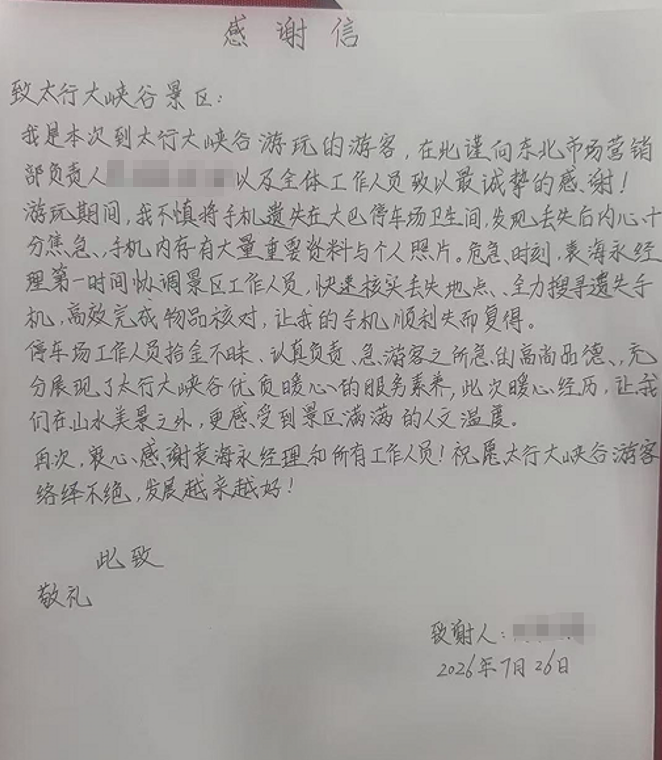 感谢信
致太行大峡谷景区：
我是本次到太行大峡谷游玩的游客，在此谨向东北市场营销
部负责人以及全体工作人员致以最诚挚的感谢！
游玩期间，我不慎将手机遗失在大巴停车场卫生间，发现丢失后内心十
分焦急，手机内存有大量重要资料与个人照片。危急时刻，袁海永经
理第一时间协调景区工作人员，快速核实丢失地点、全力搜寻遗失手
机，高效完成物品核对，让我的手机顺利失而复得。
停车场工作人员拾金不昧、认真负责、急游客之所急的高尚品德、充
分展现了太行大峡谷优质暖心的服务素养，此次暖心经历，让我
们在山水美景之外，更感受到景区满满的人文温度。
再次，衷心感谢袁海永经理和所有工作人员！祝愿太行大峡谷游客
络绎不绝，发展越来越好！
此致
敬礼
致谢人：
2026年7月26日